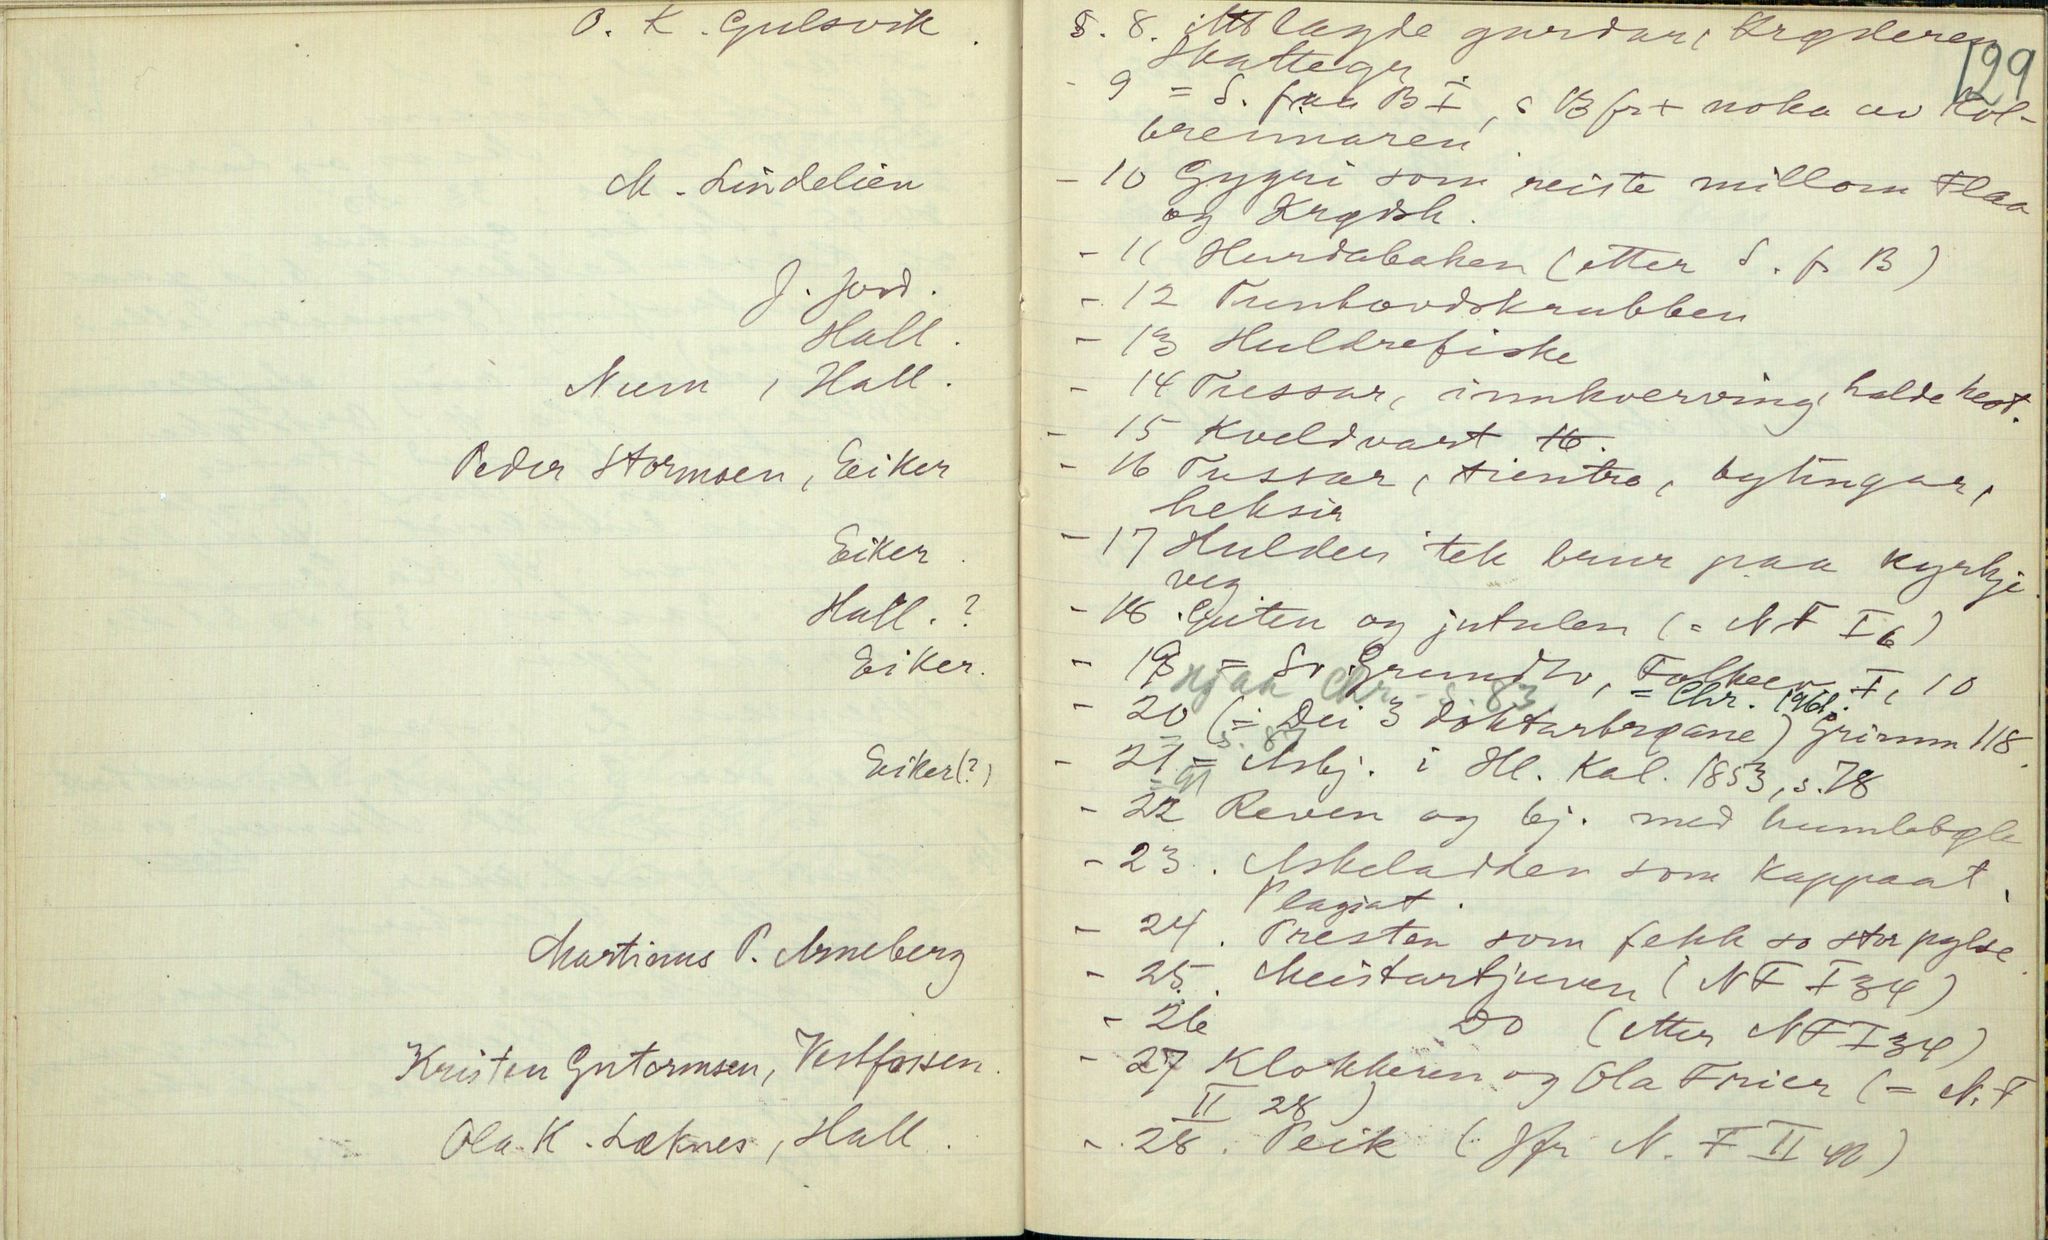 O. K. Gulsvik.
M. Lindelien
J. Jord.
Hall.
Num, Hall.
Peder Stormoen, Eiker
Eiker.
Hall.?
Eiker.
Eiker(?)
Martinus P. Arneberg
Kristen Gutormsen, Vestfossen.
Ola K. Læknes, Hall.
129
S. 8. lagde gardar, Krøderen
Skattegr
- 9 = S. fraa B I, s 13 fr + noka av Kol-
brennaren.
- 10 Gygri som reiste millom Flaa
og Krødsh.
- 11 Hurdabaken (etter S. fr B)
- 12 Trunbordskrubben
- 13 Huldrefiske
- 14 Tussar, innkverving, halde hest.
- 15 Kveldvart 16.
- 16 Tussar, tientra, bytingar,
heksir
- 17 Huldri tek brur paa kyrkje
veg
- 18. Guten og jutulen (= N F I 6)
- 19 = Sv Grundtv, Folkeev I, 10
Sjaa Chr. s. 83
= Chr. 196b.
- 20 (= Dei 3 doktarbrøane) Grimm 118.
s. 87
- 21 = Asbj. i Ill. Kal. 1853, s. 78
= 91
- 22 Reven og bj. med humlebøle
- 23. Askeladden som kappaat,
Plagiat.
- 24. Presten som fekk so stor pylse.
- 25. Meistartjuven (N F I 34)
- 26 Do (etter N F I 34)
- 27 Klokkeren og Ola Frier (= N. F
II 28)
- 28. Peik (Jfr N. F II )